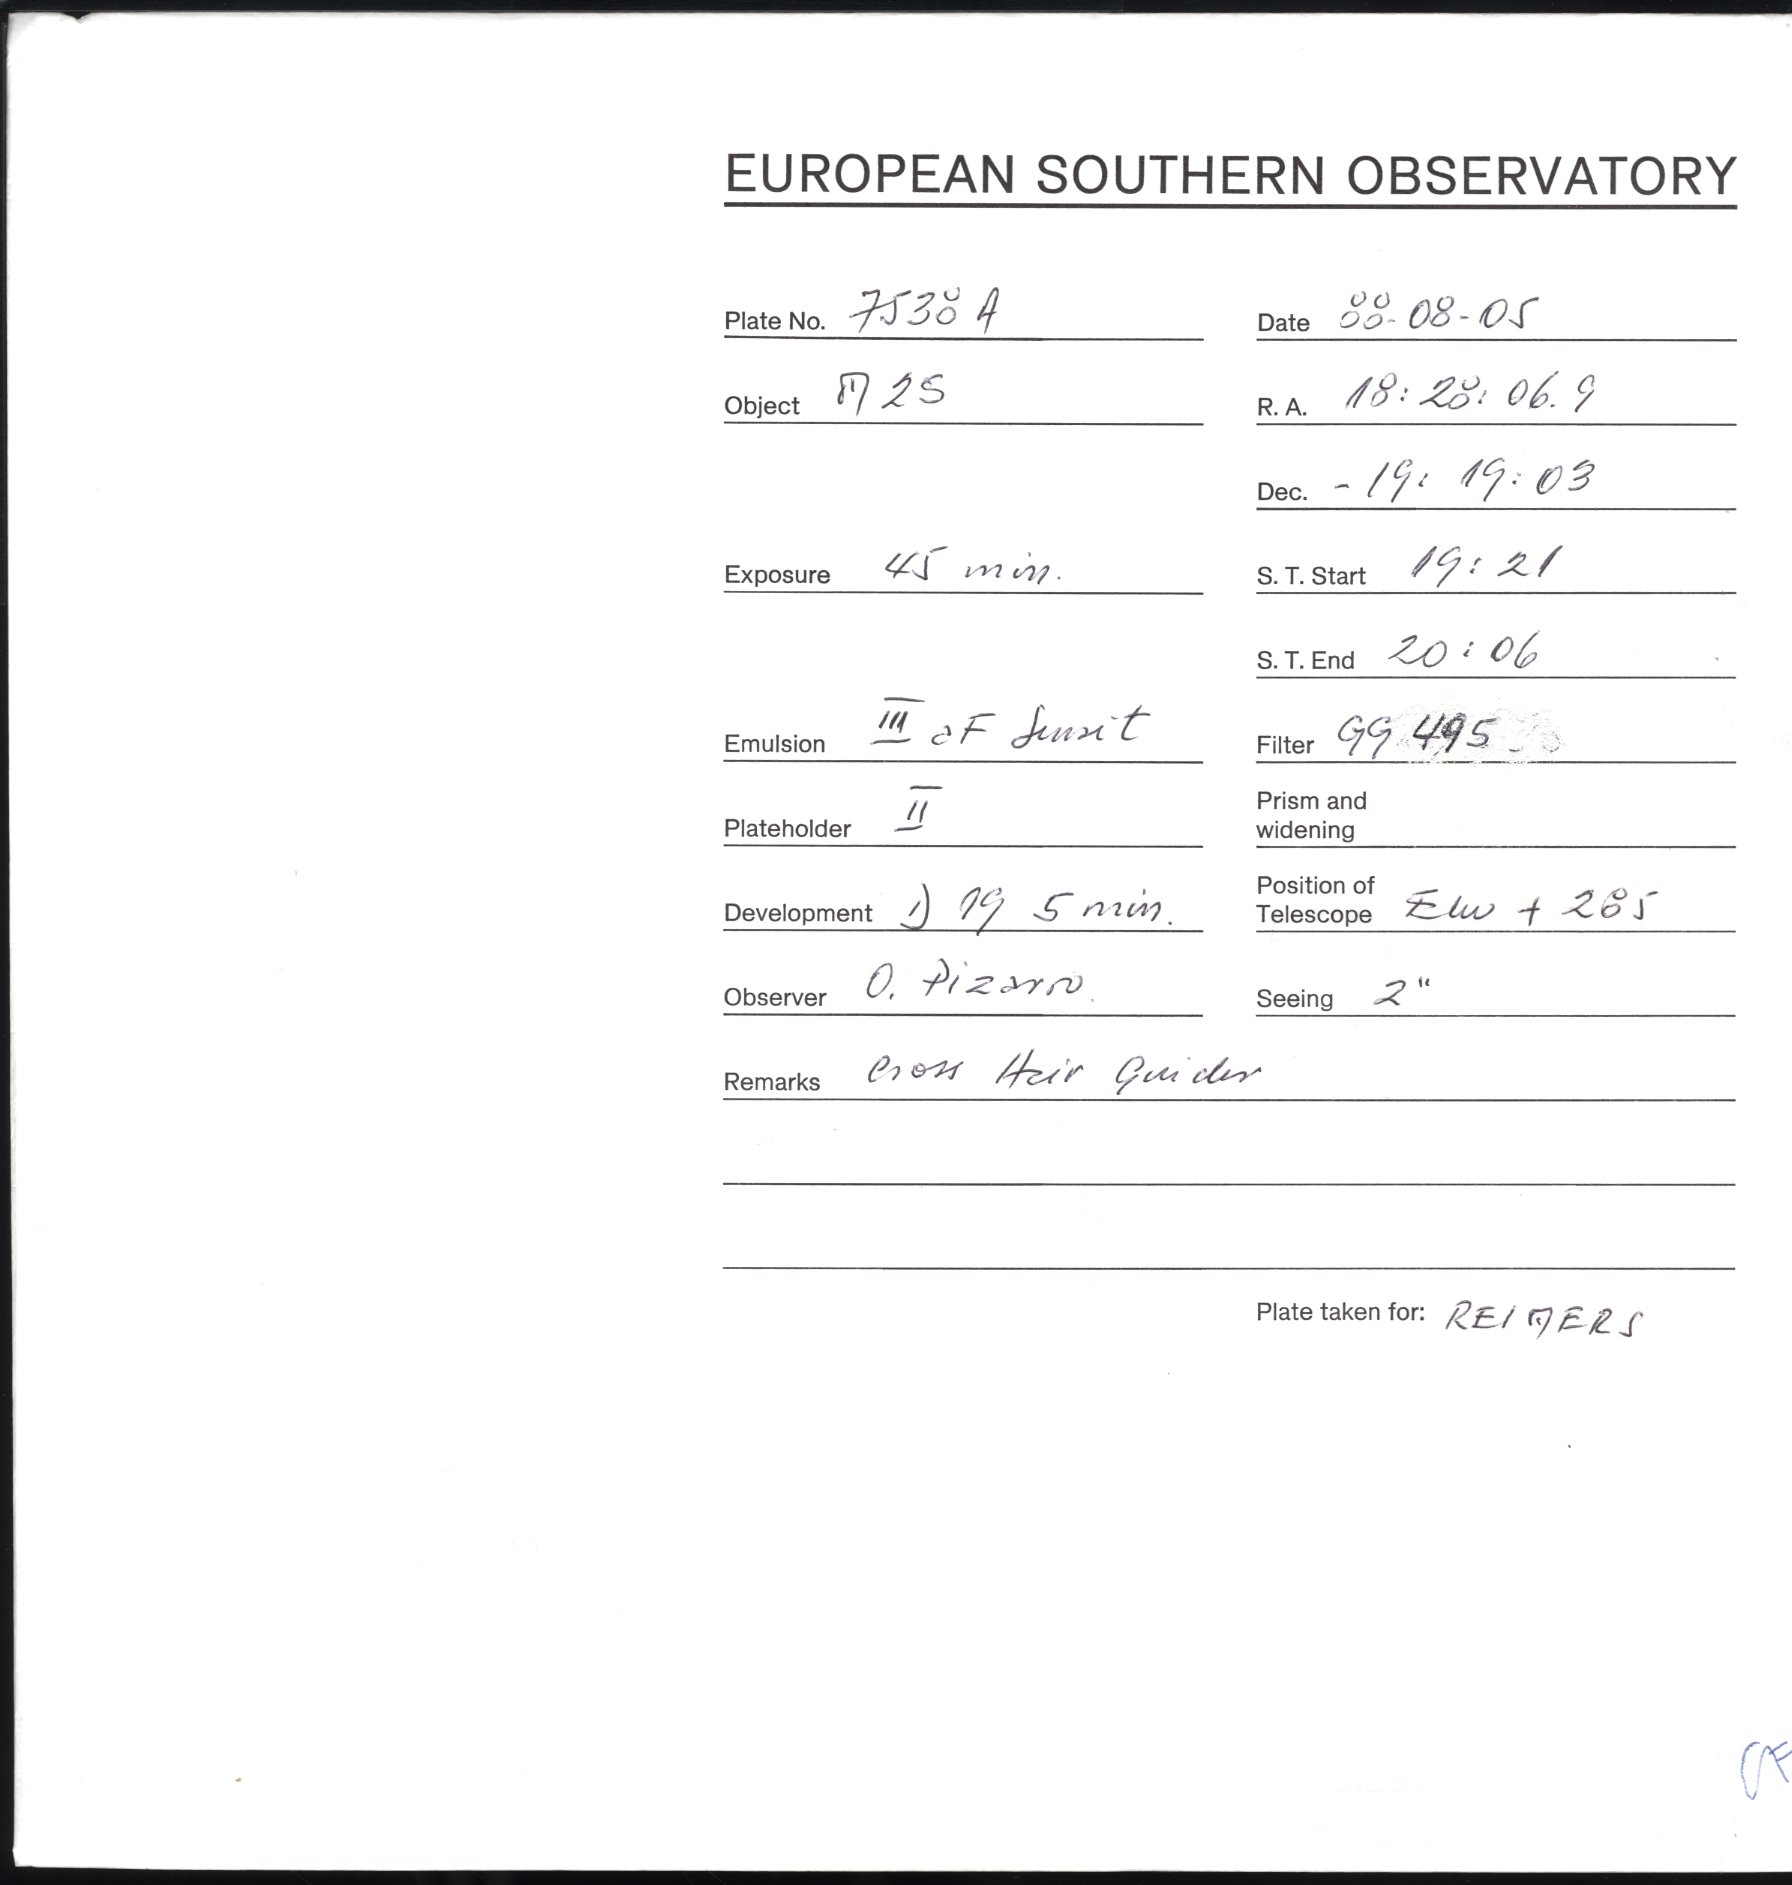 EUROPEAN SOUTHERN OBSERVATORY
Plate No. 7538 A
Date 88-08-05
Object M 25
R. A. 18:28:06.9
Dec. -19: 19:03
Exposure 45 min.
S. T. Start 19:21
S. T. End 20:06
Emulsion III aF Sensit
Filter GG 495
Plateholder II
Prism and
widening
Development 1) 19 5 min.
Position of
Telescope + 285
Observer O. Pizarro.
Seeing 2"
Remarks Cross Hair Guider
Plate taken for: REIMERS